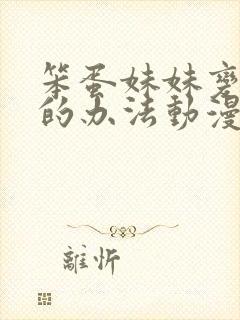 笨蛋妹妹
的办法動漫
離忻